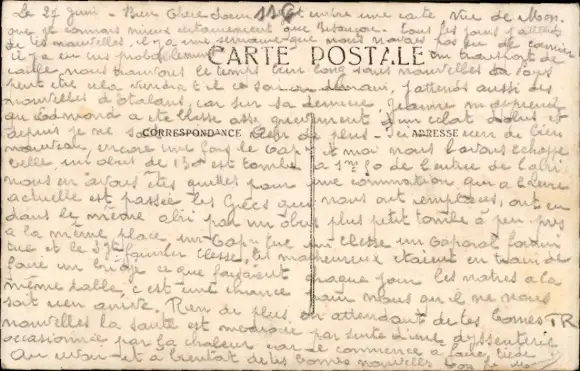 Le 27 Juin - Bien Chère Soeur 119 encore une carte Vue de Mon
que je connais mieux certainement que Besançon. Tous les jours j'attends
de tes nouvelles. il y a une semaine que nous n'avons pas eu de courrier
il y a eu eu probablement un transport de
CARTE POSTALE
coulé nous trouvons le temps bien long sans nouvelles du pays
peut être cela viendra t il ce soir ou demain, j'attends aussi des
nouvelles d'Etalans, car sur sa dernière Jeanne m'apprenait
qu'Edmond a été blessé assez gravement d'un éclat d'obus et
depuis je ne sais rien de plus - Ici rien de bien
CORRESPONDANCE ADRESSE
nouveau, encore une fois le Cap et moi nous l'avons échappé
belle un obus de 130 est tombé à 1m50 de l'entrée de l'abri
nous en avons été quittes pour une commotion, qui à l'heure
actuelle est passée les Grecs qui nous ont remplacés, ont eu
dans le même abri par un obus plus petit tombé à peu près
à la même place, un Cap tué un blessé un Caporal fourrier
tué et le Sgt fourrier blessé, les malheureux étaient en train de
faire un bridge ce que faisaient chaque jour les nôtres à la
même table, c'est une chance pour nous qu'il ne nous
soit rien arrivé. Rien de plus en attendant de tes bonnes TR
nouvelles la santé est médiocre par suite d'une dyssenterie
occasionnée par la chaleur car il commence à faire
Au revoir et à bientôt de tes bonnes nouvelles